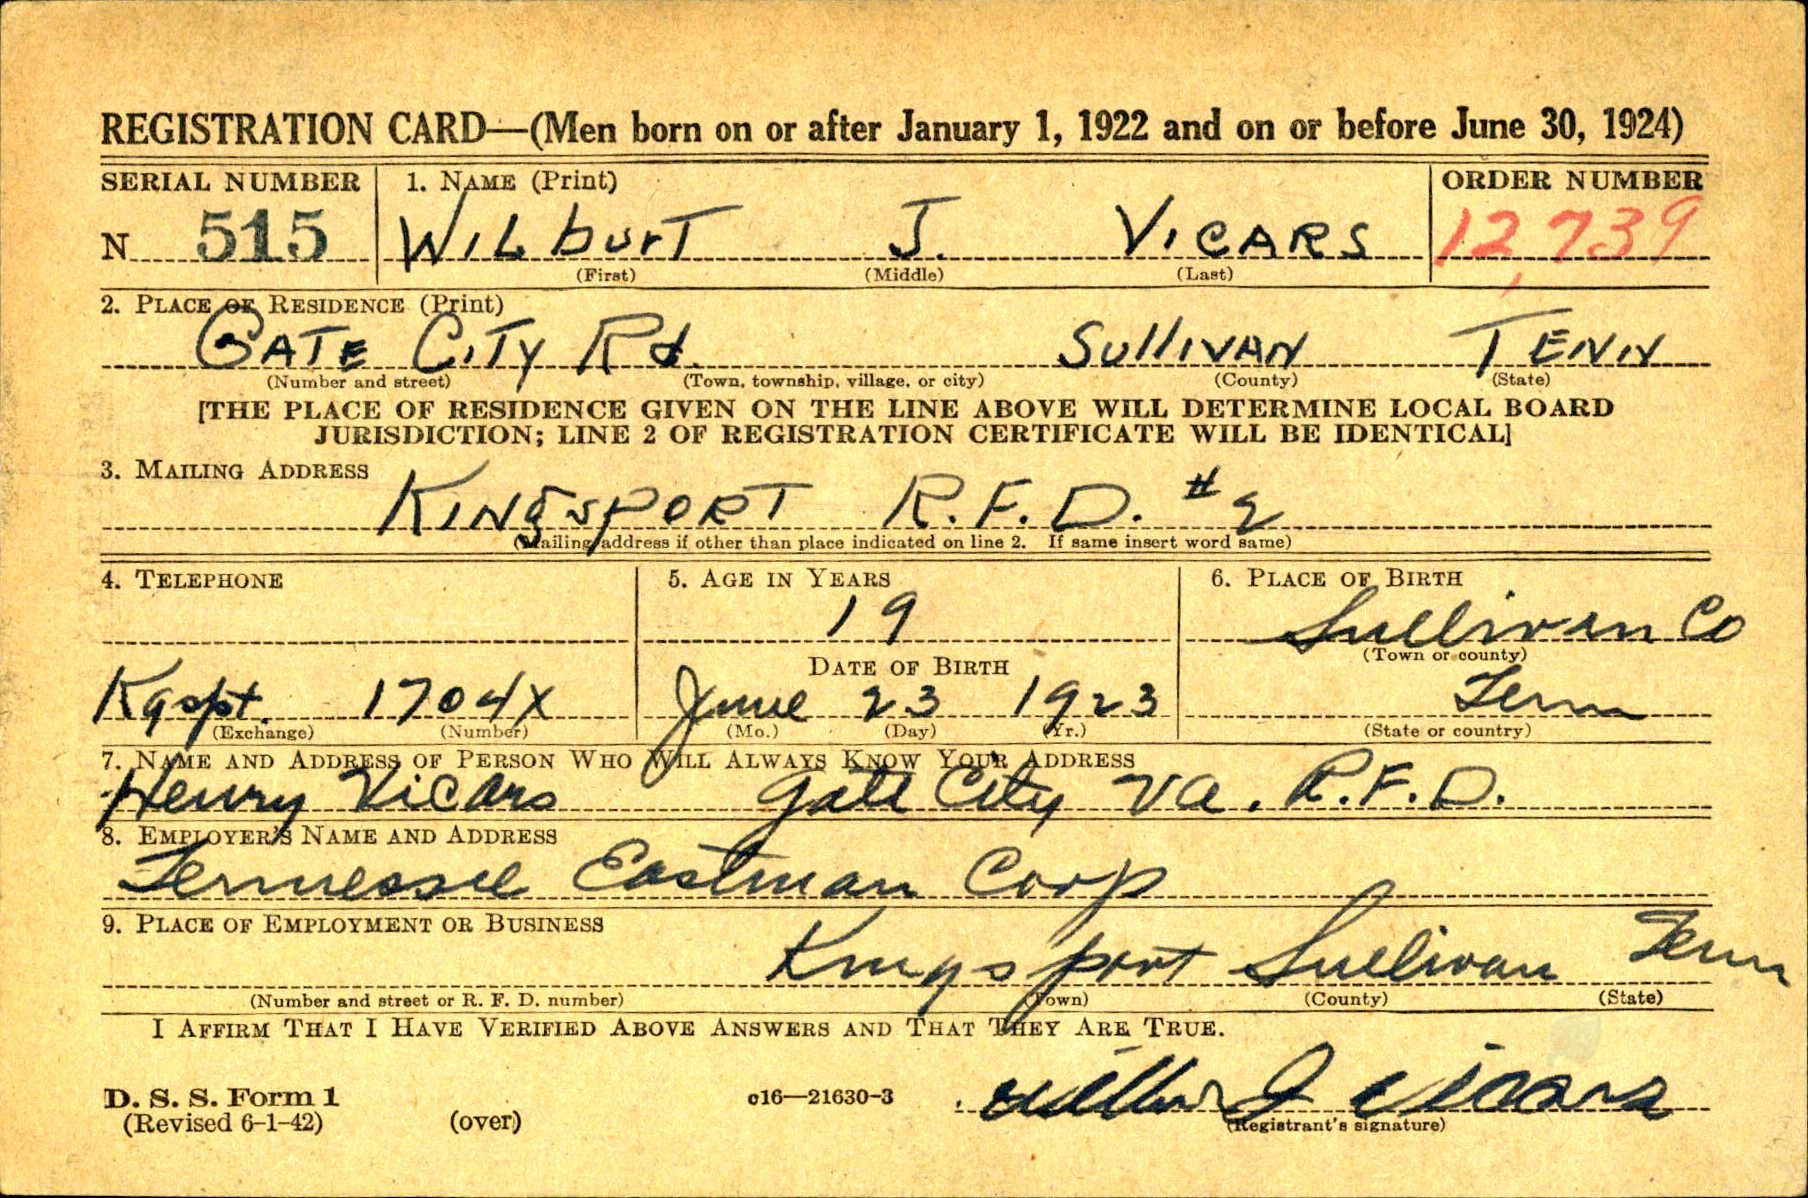 REGISTRATION CARD—(Men born on or after January 1, 1922 and on or before June 30, 1924)
SERIAL NUMBER 1. NAME (Print) ORDER NUMBER
N 515 WILburT J. VICARS 12,739
(First) (Middle) (Last)
2. PLACE OF RESIDENCE (Print)
GATE CITY Rd. SullIVAN TENN
(Number and street) (Town, township, village, or city) (County) (State)
[THE PLACE OF RESIDENCE GIVEN ON THE LINE ABOVE WILL DETERMINE LOCAL BOARD
JURISDICTION; LINE 2 OF REGISTRATION CERTIFICATE WILL BE IDENTICAL]
3. MAILING ADDRESS
KINgsPORT R.F.D. #2
(Mailing address if other than place indicated on line 2. If same insert word same)
4. TELEPHONE 5. AGE IN YEARS 6. PLACE OF BIRTH
19 Sullivan Co
DATE OF BIRTH (Town or county)
Kgspt. 1704X June 23 1923 Tenn
(Exchange) (Number) (Mo.) (Day) (Yr.) (State or country)
7. NAME AND ADDRESS OF PERSON WHO WILL ALWAYS KNOW YOUR ADDRESS
Henry Vicars Gate City Va. R.F.D.
8. EMPLOYER'S NAME AND ADDRESS
Tennessee Eastman Corp
9. PLACE OF EMPLOYMENT OR BUSINESS
Kingsport Sullivan Tenn
(Number and street or R. F. D. number) (Town) (County) (State)
I AFFIRM THAT I HAVE VERIFIED ABOVE ANSWERS AND THAT THEY ARE TRUE.
D. S. S. Form 1
(Revised 6-1-42) (over) c16—21630-3 Wilbur J Vicars
(Registrant's signature)